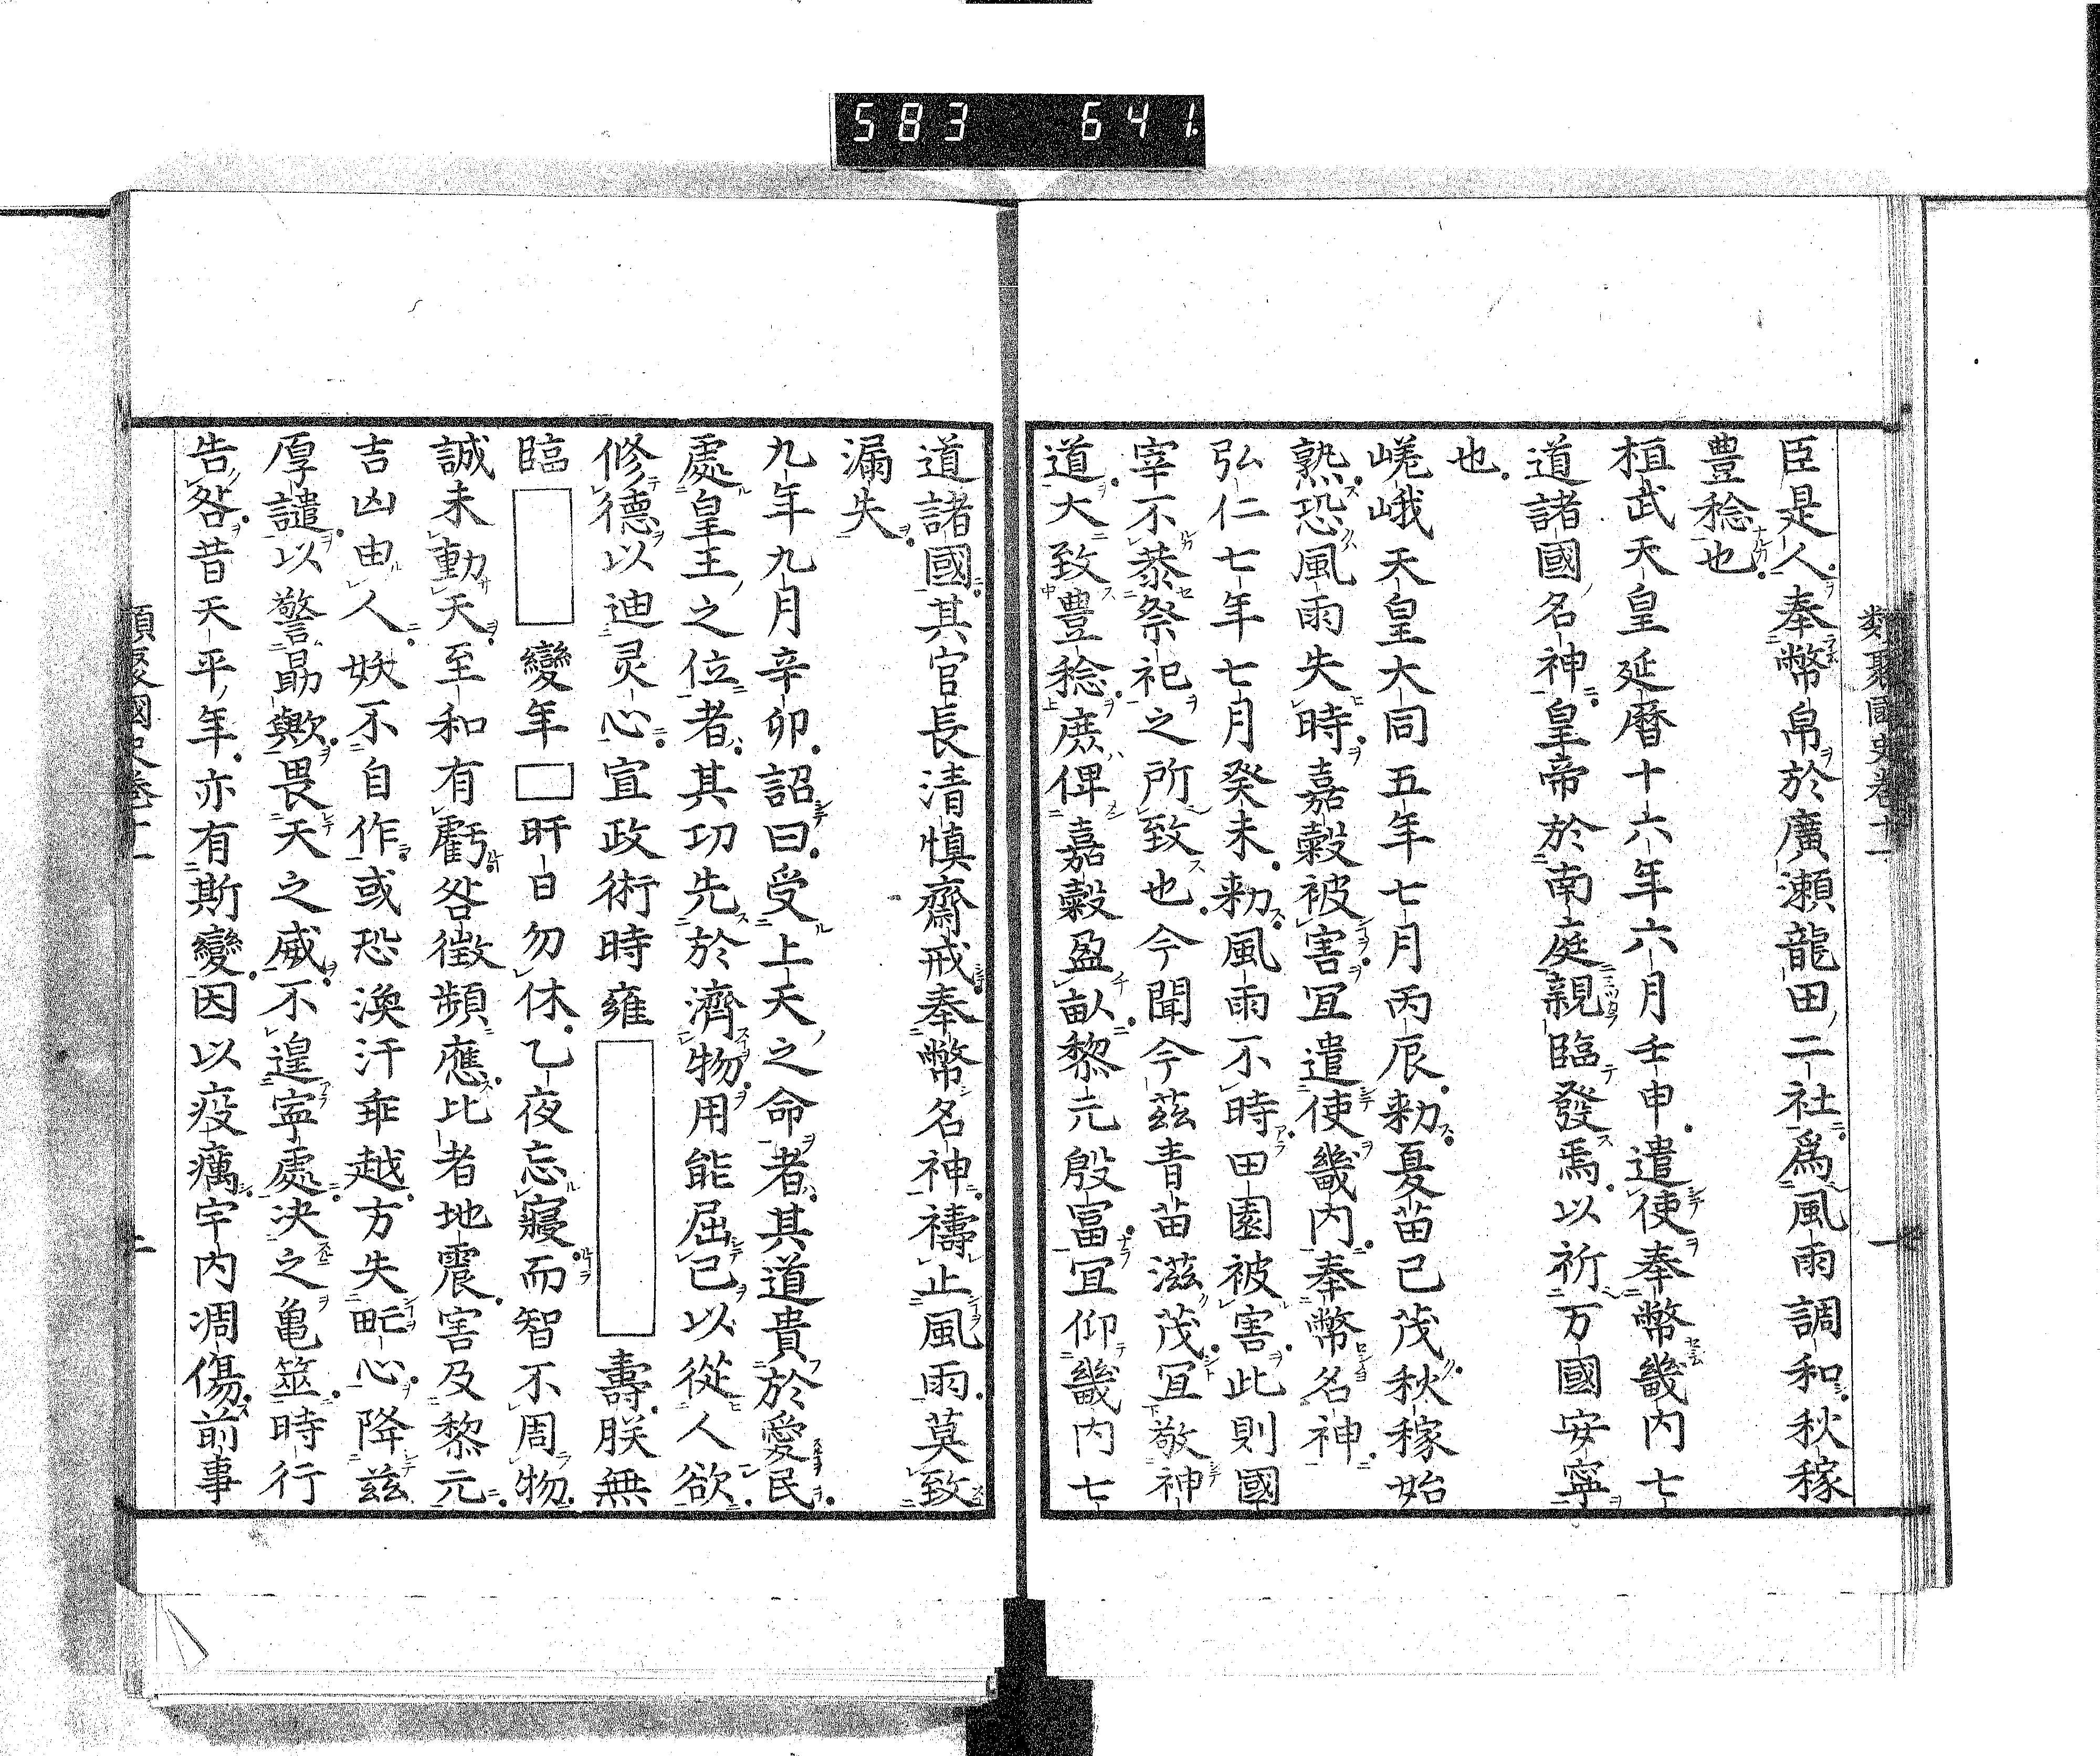 583 641
類聚國史卷十一
臣是人奉幣帛於廣瀬龍田二社爲風雨調和秋稼
豊稔也
桓武天皇延暦十六年六月壬申遣使奉幣畿内七
道諸國名神皇帝於南庭親臨發焉以祈万國安寧
也
嵯峨天皇大同五年七月丙辰勅夏苗已茂秋稼始
熟恐風雨失時嘉穀被害宜遣使畿内奉幣名神
弘仁七年七月癸未勅風雨不時田園被害此則國
宰不恭祭祀之所致也今聞今茲青苗滋茂宜敬神
道大致豊稔庶俾嘉穀盈畝黎元殷富宜仰畿内七
道諸國其官長清慎齋戒奉幣名神禱止風雨莫致
漏失
九年九月辛卯詔曰受上天之命者其道貴於愛民
處皇王之位者其功先於濟物用能屈己以從人欲
修德以迪灵心宣政術時雍□壽朕無
臨□變年□旰日勿休乙夜忘寢而智不周物
誠未動天至和有虧咎徴頻應比者地震害及黎元
吉凶由人妖不自作或恐渙汗乖越方失甿心降茲
厚譴以警勗歟畏天之威不遑寧處决之亀筮時行
告咎昔天平年亦有斯變因以疫癘宇内凋傷前事
類聚國史卷十一
二